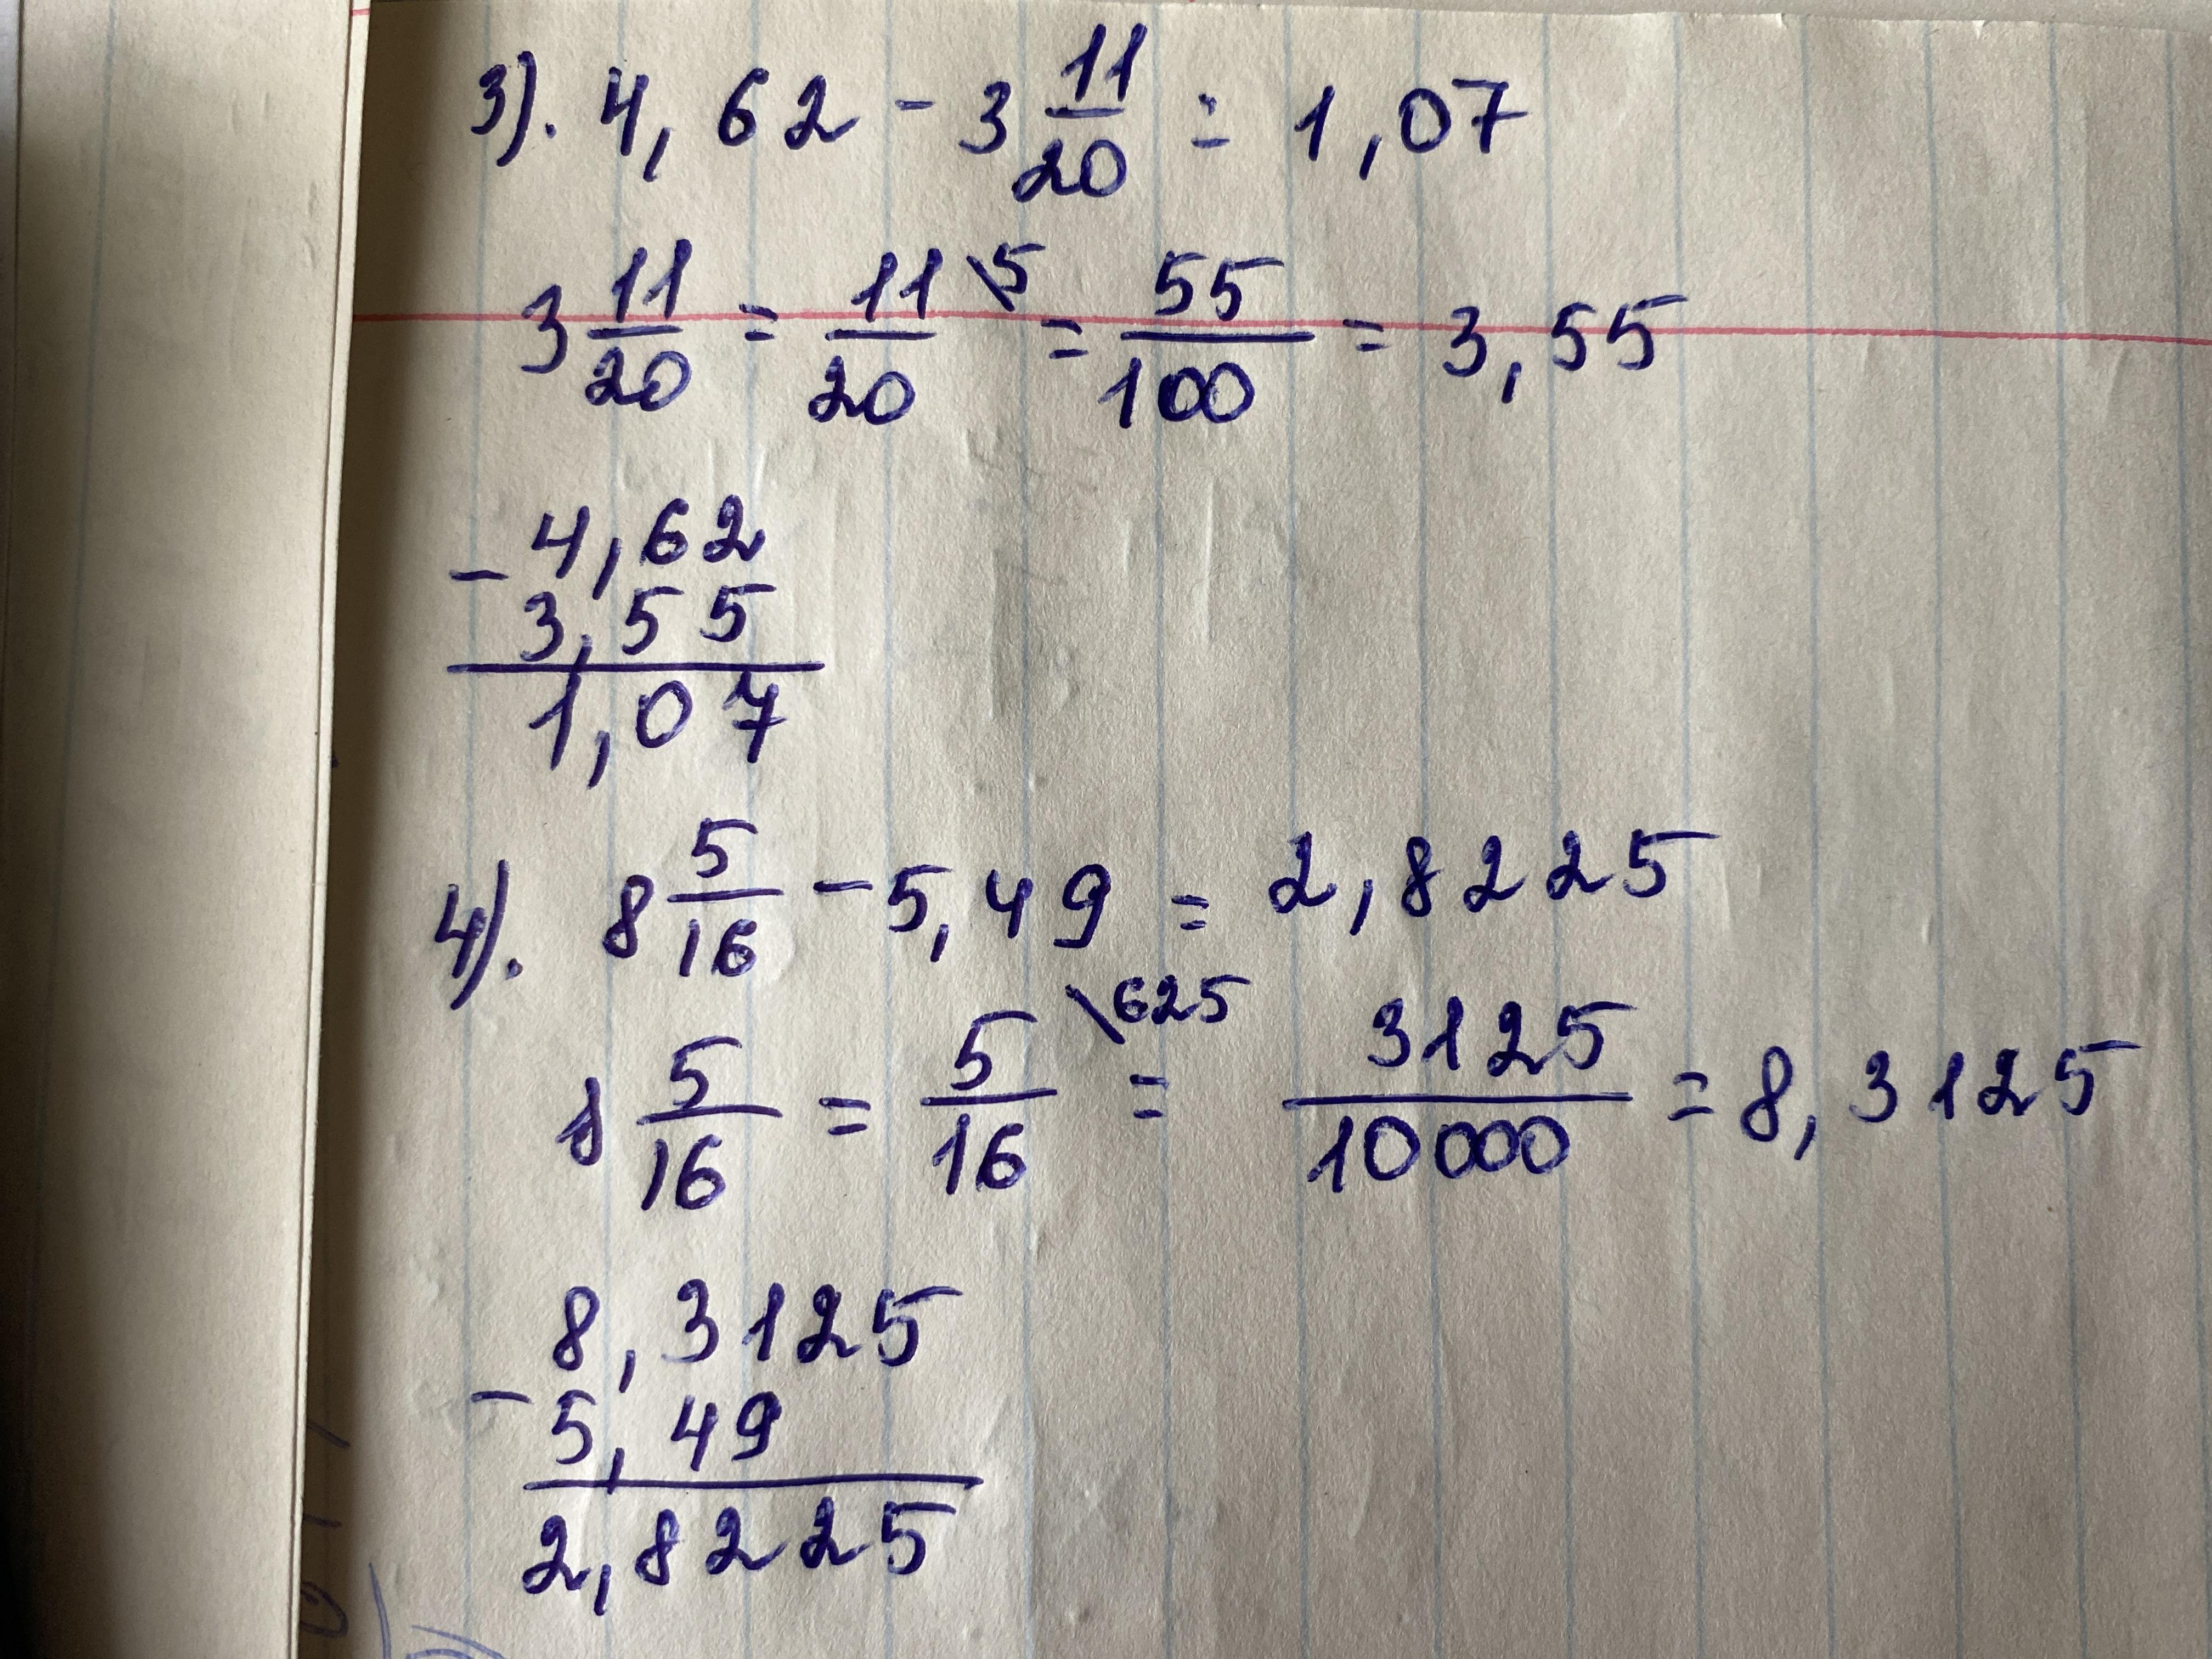 3). 4,62 - 3 11/20 = 1,07
3 11/20 = 11/20 \5 = 55/100 = 3,55
- 4,62
3,55
1,07
4). 8 5/16 - 5,49 = 2,8225
8 5/16 = 5/16 \625 = 3125/10000 = 8,3125
8,3125
- 5,49
2,8225